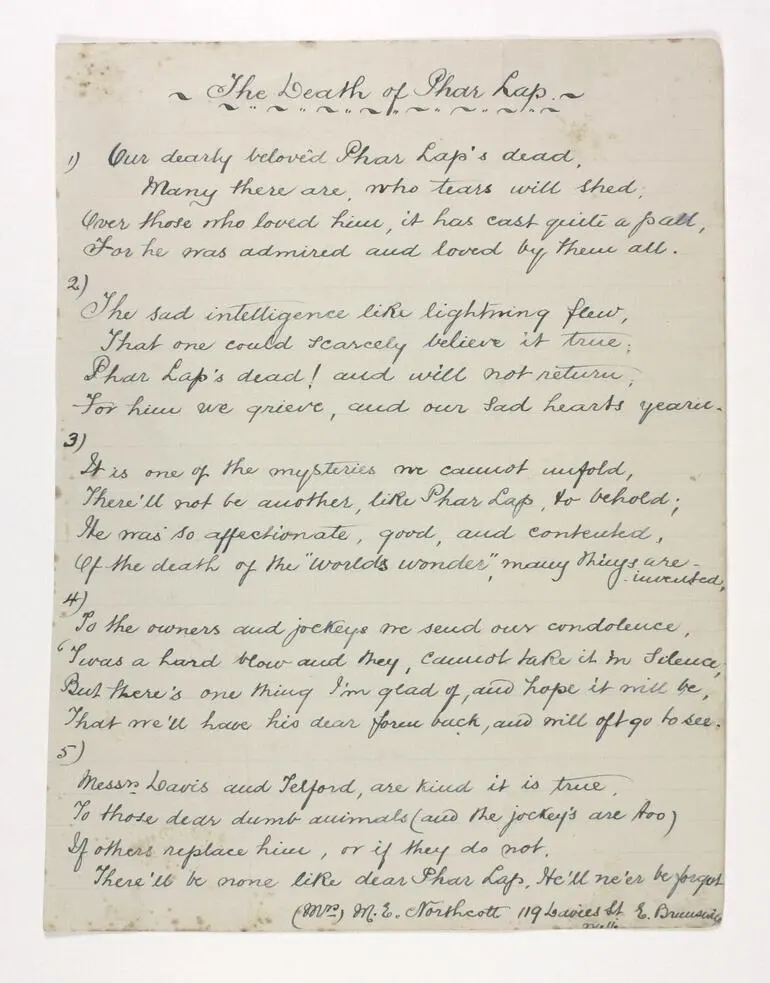 ~ The Death of Phar Lap. ~
1) Our dearly beloved Phar Lap's dead,
Many there are, who tears will shed;
Over those who loved him, it has cast quite a pall,
For he was admired and loved by them all.
2)
The sad intelligence like lightning flew,
That one could scarcely believe it true;
Phar Lap's dead! and will not return,
For him we grieve, and our sad hearts yearn.
3)
It is one of the mysteries we cannot unfold,
There'll not be another, like Phar Lap, to behold;
He was so affectionate, good, and contented,
Of the death of the "world's wonder", many things are-
-invented,
4)
To the owners and jockeys we send our condolence,
'Twas a hard blow and they, cannot take it in silence,
But there's one thing I'm glad of, and hope it will be,
That we'll have his dear form back, and will oft go to see.
5)
Messrs Davis and Telford, are kind it is true,
To those dear dumb animals (and the jockey's are too)
If others replace him, or if they do not,
There'll be none like dear Phar Lap, He'll ne'er be forgot
(Mrs) M. E. Northcott 119 Davies St. E. Brunswick